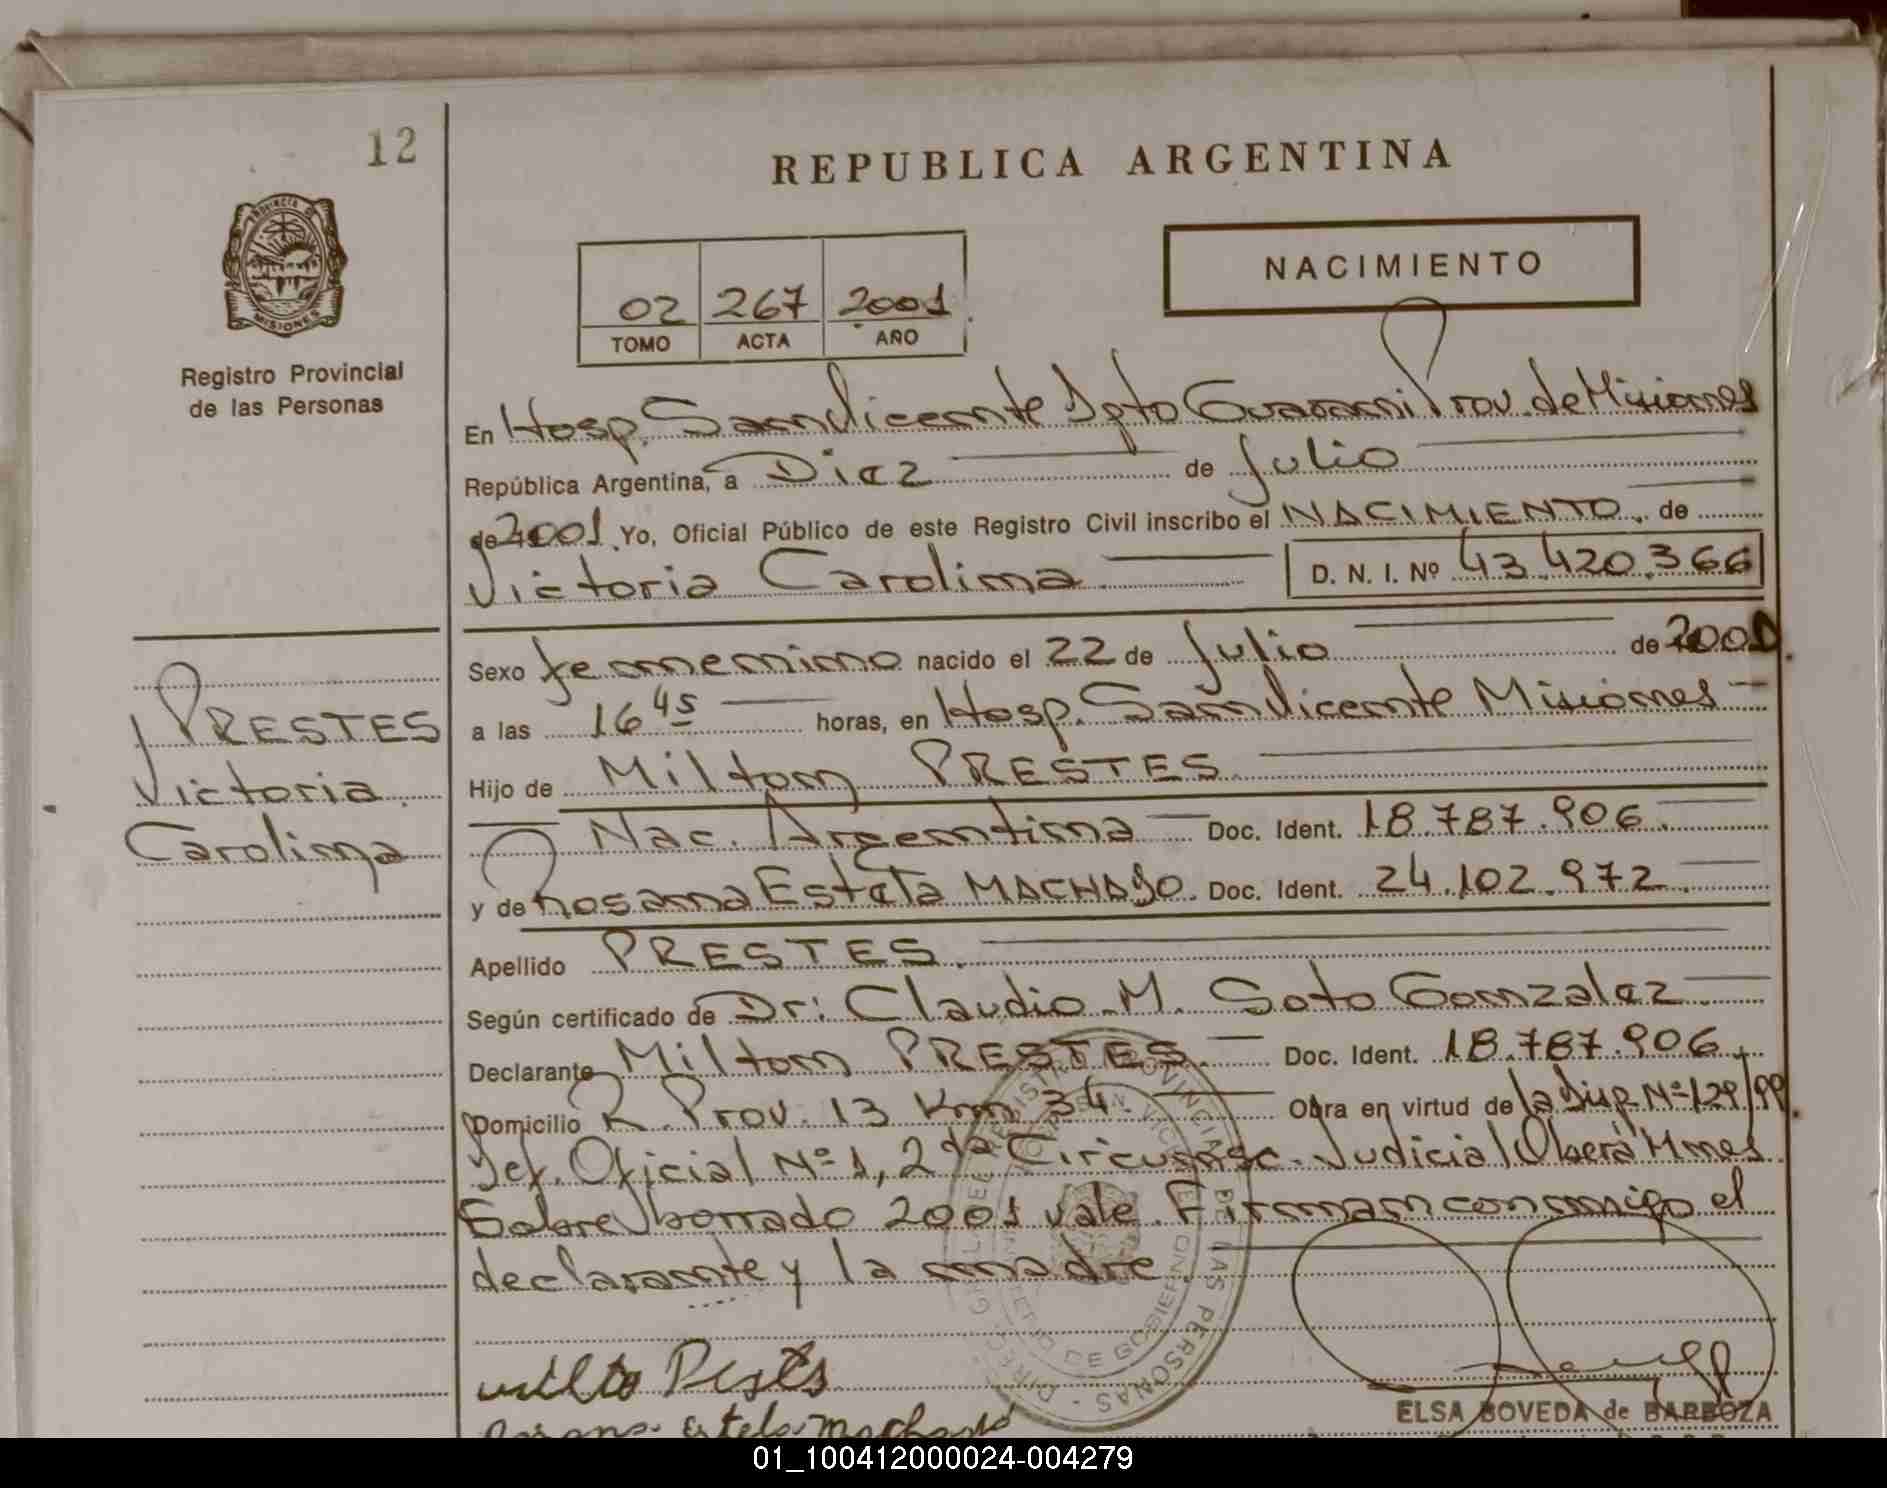 12
REPUBLICA ARGENTINA
PROVINCIA DE
MISIONES
Registro Provincial
de las Personas
NACIMIENTO
02 267 2001
TOMO ACTA AÑO
En Hosp. San Vicente Dpto Guarani Prov. de Misiones
República Argentina, a Diez de Julio
de 2001. Yo, Oficial Público de este Registro Civil inscribo el NACIMIENTO. de
Victoria Carolina D. N. I. Nº 43.420.366
Sexo femenino nacido el 22 de Julio de 2001.
a las 16 45 horas, en Hosp. San Vicente Misiones
Hijo de Milton PRESTES
Nac. Argentina Doc. Ident. 18.787.906.
y de Rosana Estela MACHADO. Doc. Ident. 24.102.972.
Apellido PRESTES.
Según certificado de Dr: Claudio M. Soto Gonzalez.
Declarante Milton PRESTES. Doc. Ident. 18.787.906.
Domicilio R. Prov. 13 Km 34. Obra en virtud de la Disp. Nº 129/99.
Def. Oficial Nº 1, 2da Circunsc. Judicial Oberá Mnes
Sobre borrado 2001 vale. Firman conmigo el
declarante y la madre.
PRESTES
Victoria
Carolina
Rosana Estela Machado
ELSA BOVEDA de BARBOZA
01_100412000024-004279